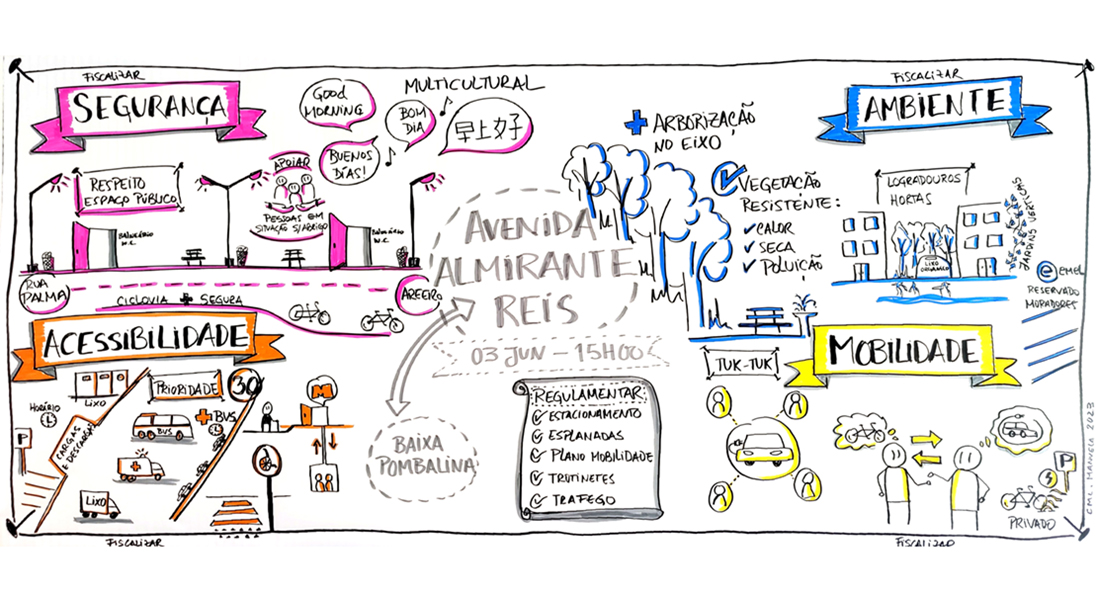 FISCALIZAR
SEGURANÇA
GOOD
MORNING
MULTICULTURAL
BOM
DIA
早上好
BUENOS
DÍAS!
RESPEITO
ESPAÇO PÚBLICO
APOIAR
PESSOAS EM
SITUAÇÃO S/ABRIGO
BALNEÁRIO
W.C.
BALNEÁRIO
W.C.
RUA
PALMA
AREEIRO
CICLOVIA + SEGURA
FISCALIZAR
AMBIENTE
+ ARBORIZAÇÃO
NO EIXO
VEGETAÇÃO
RESISTENTE:
CALOR
SECA
POLUIÇÃO
LOGRADOUROS
HORTAS
LIXO
ORGÂNICO
JARDINS VERTICAIS
e emel
RESERVADO
MORADORES
AVENIDA
ALMIRANTE
REIS
03 JUN - 15H00
BAIXA
POMBALINA
ACESSIBILIDADE
LIXO
PRIORIDADE
30
HORÁRIO
P
CARGAS
E DESCARGAS
BUS
+ BUS
LIXO
M
FISCALIZAR
REGULAMENTAR
ESTACIONAMENTO
ESPLANADAS
PLANO MOBILIDADE
TRUTINETES
TRAFEGO
TUK-TUK
MOBILIDADE
P
PRIVADO
FISCALIZAR
CML. MANUELA 2023